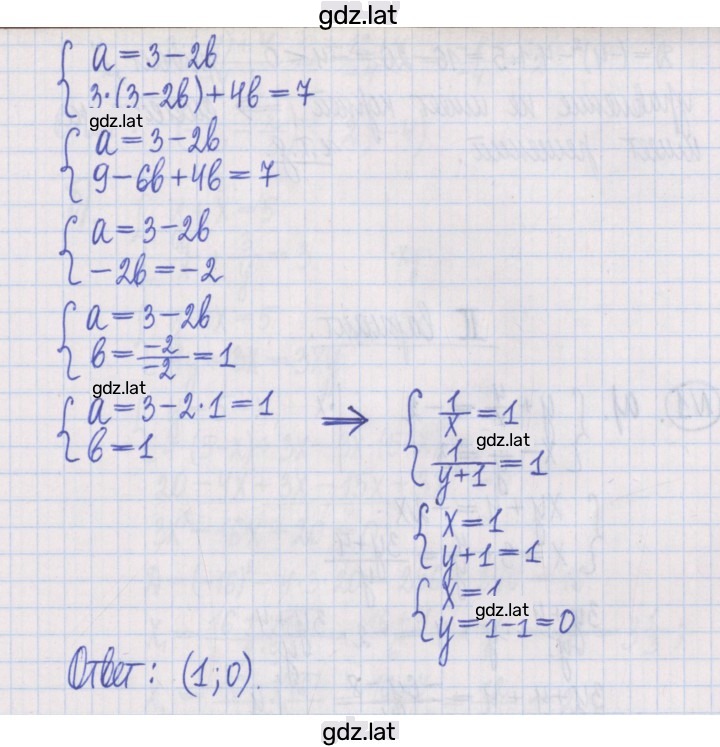 gdz.lat
a = 3 - 2b
3·(3-2b)+4b = 7
gdz.lat
a = 3 - 2b
9 - 6b + 4b = 7
a = 3 - 2b
-2b = -2
a = 3 - 2b
b = -2/-2 = 1
gdz.lat
a = 3 - 2·1 = 1
b = 1
⇒
1/x = 1
gdz.lat
1/(y+1) = 1
x = 1
y+1 = 1
x = 1
gdz.lat
y = 1-1 = 0
Ответ: (1; 0).
gdz.lat